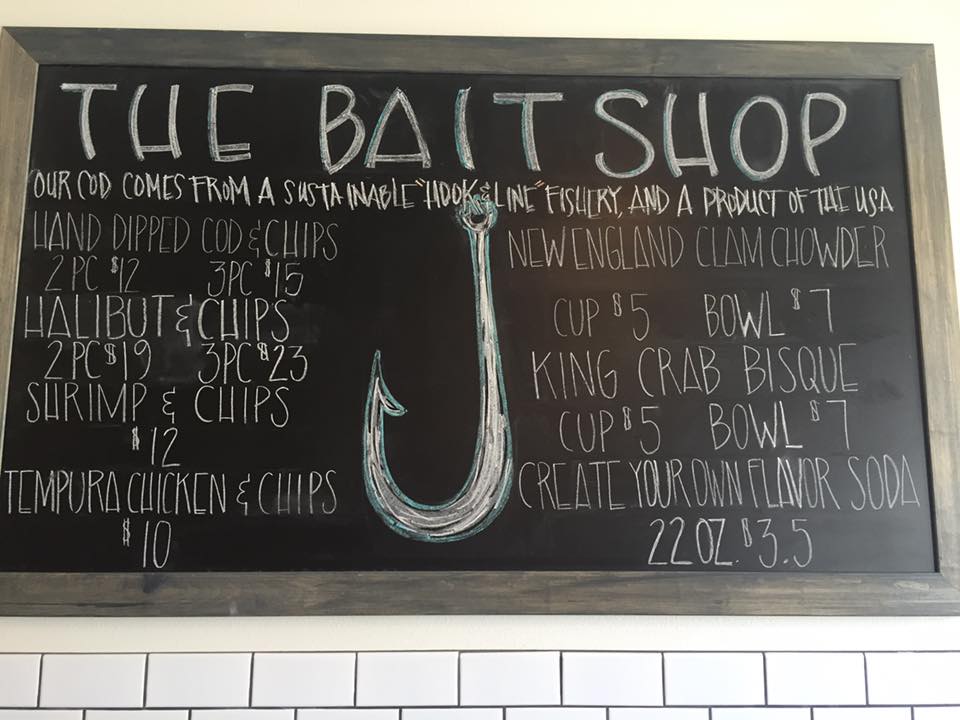 THE BAIT SHOP
OUR COD COMES FROM A SUSTAINABLE "HOOK & LINE" FISHERY, AND A PRODUCT OF THE USA
HAND DIPPED COD & CHIPS
2 PC $12 3PC $15
HALIBUT & CHIPS
2 PC $19 3PC $23
SHRIMP & CHIPS
$12
TEMPURA CHICKEN & CHIPS
$10
NEW ENGLAND CLAM CHOWDER
CUP $5 BOWL $7
KING CRAB BISQUE
CUP $5 BOWL $7
CREATE YOUR OWN FLAVOR SODA
22OZ. $3.5